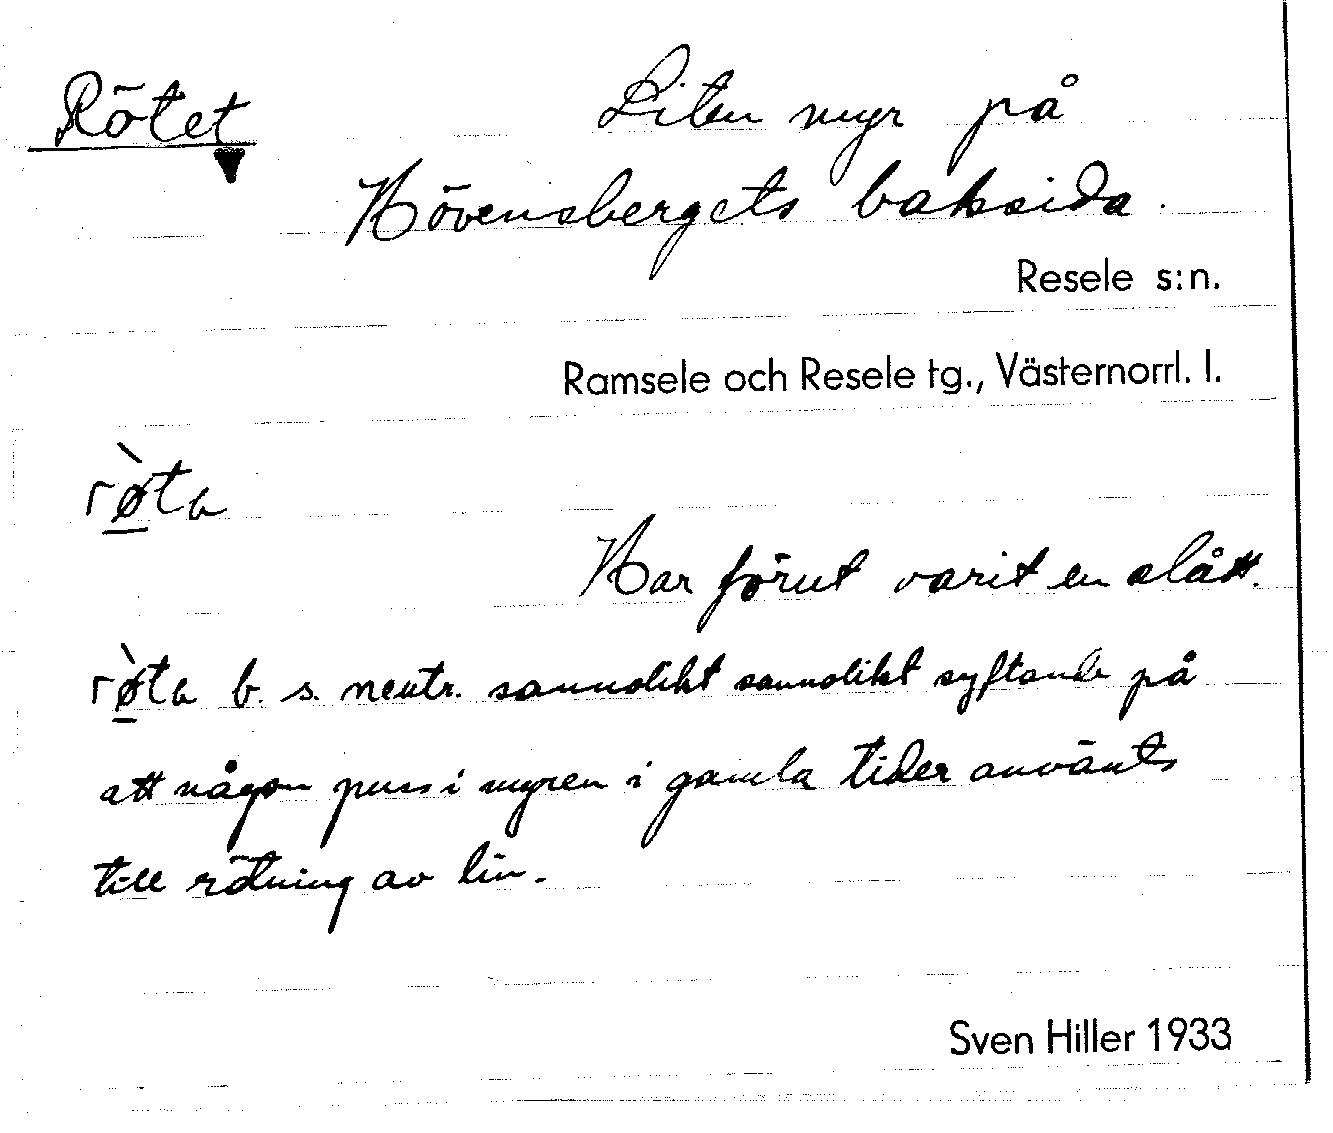 Rötet
Liten myr på
Hövensbergets baksida.
Resele s:n.
Ramsele och Resele tg., Västernorrl. l.
rø̀ta
Har förut varit en slått.
rø̀ta b. s. neutr. sannolikt sannolikt syftande på
att någon puss i myren i gamla tider använts
till rötning av lin.
Sven Hiller 1933